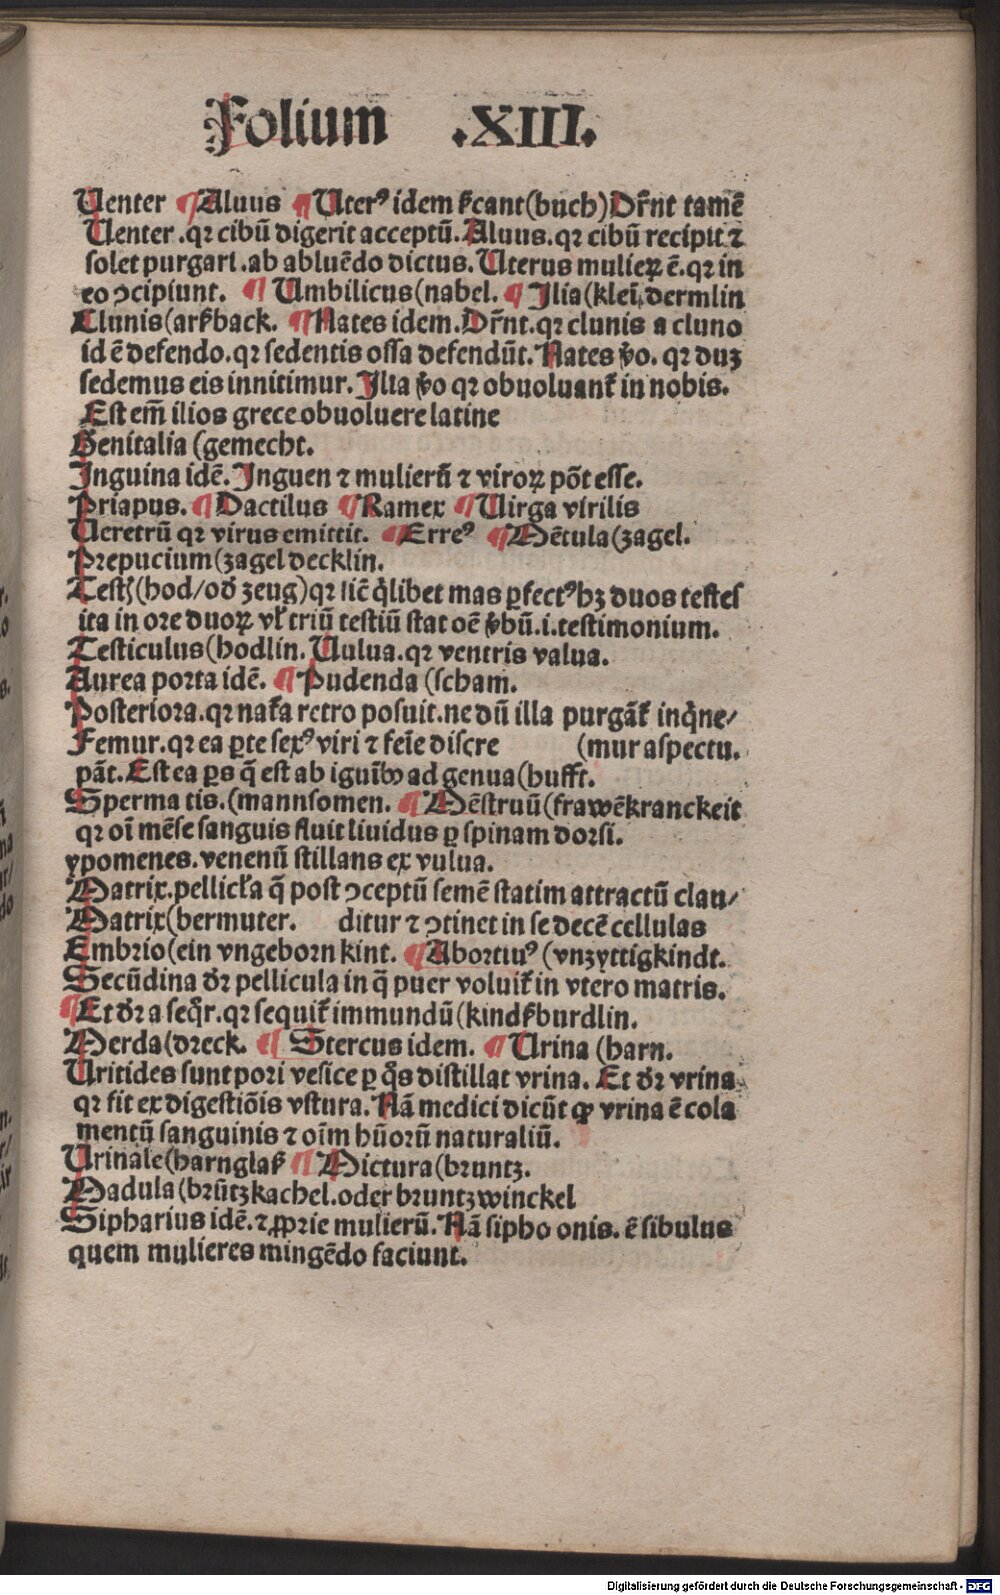 Folium .XIII.
Uenter ¶Aluus ¶Uterꝰ idem ſcant(buch)Dr̄nt tamē
Uenter .qꝛ cibū digerit acceptū. Aluus.qꝛ cibū recipit ⁊
ſolet purgari .ab abluēdo dictus. Uterus mulieꝝ ē.qꝛ in
eo ↄcipiunt. ¶ Umbilicus(nabel. ¶ Ilia(klei. dermlin
Clunis(arßback. ¶Nates idem.Dr̄nt.qꝛ clunis a cluno
id ē defendo.qꝛ ſedentis oſſa defendūt. Nates ꝟo. qꝛ duꝫ
ſedemus eis innitimur. Ilia ꝟo qꝛ obuoluant̄ in nobis.
Eſt em̄ ilios grece obuoluere latine
Genitalia (gemecht.
Inguina idē. Inguen ⁊ mulierū ⁊ viroꝝ pōt eſſe.
Priapus. ¶Dactilus ¶Ramex ¶Uirga virilis
Ueretrū qꝛ virus emittit. ¶Erreꝰ ¶Mētula(zagel.
Prepucium(zagel decklin.
Teſtꝭ(hod/od̓ zeug)qꝛ ſic̄ q̄libet mas ꝑfectꝰhꝫ duos teſteſ
ita in ore duoꝝ vl̓ triū teſtiū ſtat oē ꝟbū.i.teſtimonium.
Teſticulus(hodlin. Uulua.qꝛ ventris valua.
Aurea porta idē. ¶Pudenda (ſcham.
Poſteriora.qꝛ nat̄a retro poſuit.ne dū illa purgāt̄ inq̄ne/
Femur.qꝛ ea ꝑte ſexꝰ viri ⁊ feīe diſcre (mur aſpectu.
pāt. Eſt ea ꝑs q̄ eſt ab iguīb⁹ ad genua(hufft.
Sperma tis.(mannſomen. ¶Mēſtruū(frawēkranckeit
qꝛ oī mēſe ſanguis fluit liuidus ꝑ ſpinam dorſi.
ypomenes.venenū ſtillans ex vulua.
Matrix.pellicl̓a q̄ poſt ↄceptū ſemē ſtatim attractū clau/
Matrix(bermuter. ditur ⁊ ↄtinet in ſe decē cellulas
Embrio(ein vngeborn kint. ¶Abortiuꝰ (vnzyttigkindt.
Secūdina dꝛ pellicula in q̄ puer voluit̄ in vtero matris.
¶Et dꝛ a ſeq̄r.qꝛ ſequit̄ immundū(kindßburdlin.
Merda(dreck. ¶ Stercus idem. ¶ Urina (harn.
Uritides ſunt pori veſice ꝑ q̄s diſtillat vrina. Et dꝛ vrina
qꝛ fit ex digeſtiōis vſtura. Nā medici dicūt ꝙ vrina ē cola
mentū ſanguinis ⁊ oīm hūorū naturaliū.
Urinale(harnglaß ¶ Mictura(bruntz.
Madula(brūtzkachel.oder bruntzwinckel
Sipharius idē.⁊ ꝓprie mulierū. Nā ſipho onis. ē ſibulus
quem mulieres mingēdo faciunt.
Digitalisierung gefördert durch die Deutsche Forschungsgemeinschaft - DFG